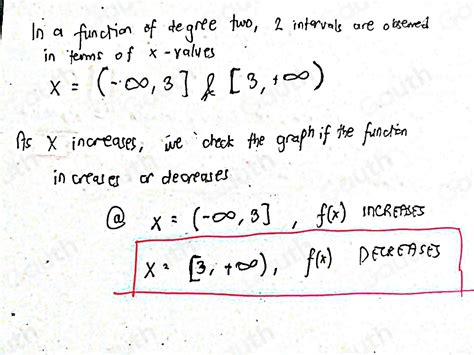 In a function of degree two, 2 intervals are observed
in terms of x-values
x = (-∞, 3] & [3, +∞)
As x increases, we check the graph if the function
increases or decreases
@ x = (-∞, 3] , f(x) INCREASES
x = [3, +∞), f(x) DECREASES